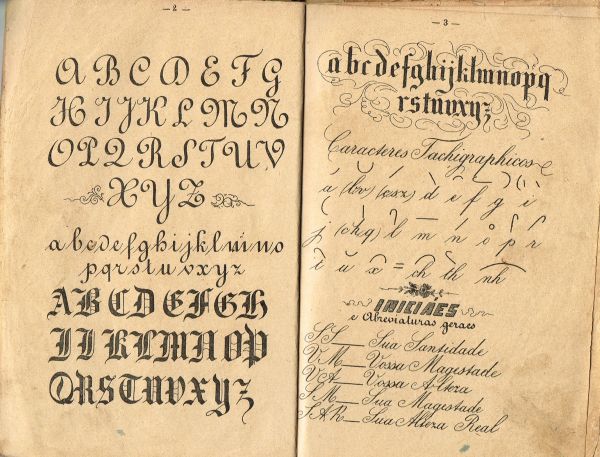 — 2 —
A B C D E F G
H I J K L M N
O P Q R S T U V
X Y Z
a b c d e f g h i j k l m n o
p q r s t u v x y z
A B C D E F G H
I J K L M N O P
Q R S T U V X Y Z
— 3 —
a b c d e f g h i j k l m n o p q
r s t u v x y z
Caracteres Tachigraphicos
á (bv) (csxz) d e f g i
j (chq) l m n o p r
t u x = ch lh nh
INICIÁES
e Abreviaturas geraes
S.S. — Sua Santidade
V.M. — Vossa Magestade
V.A. — Vossa Alteza
S.M. — Sua Magestade
S.A.R. — Sua Alteza Real